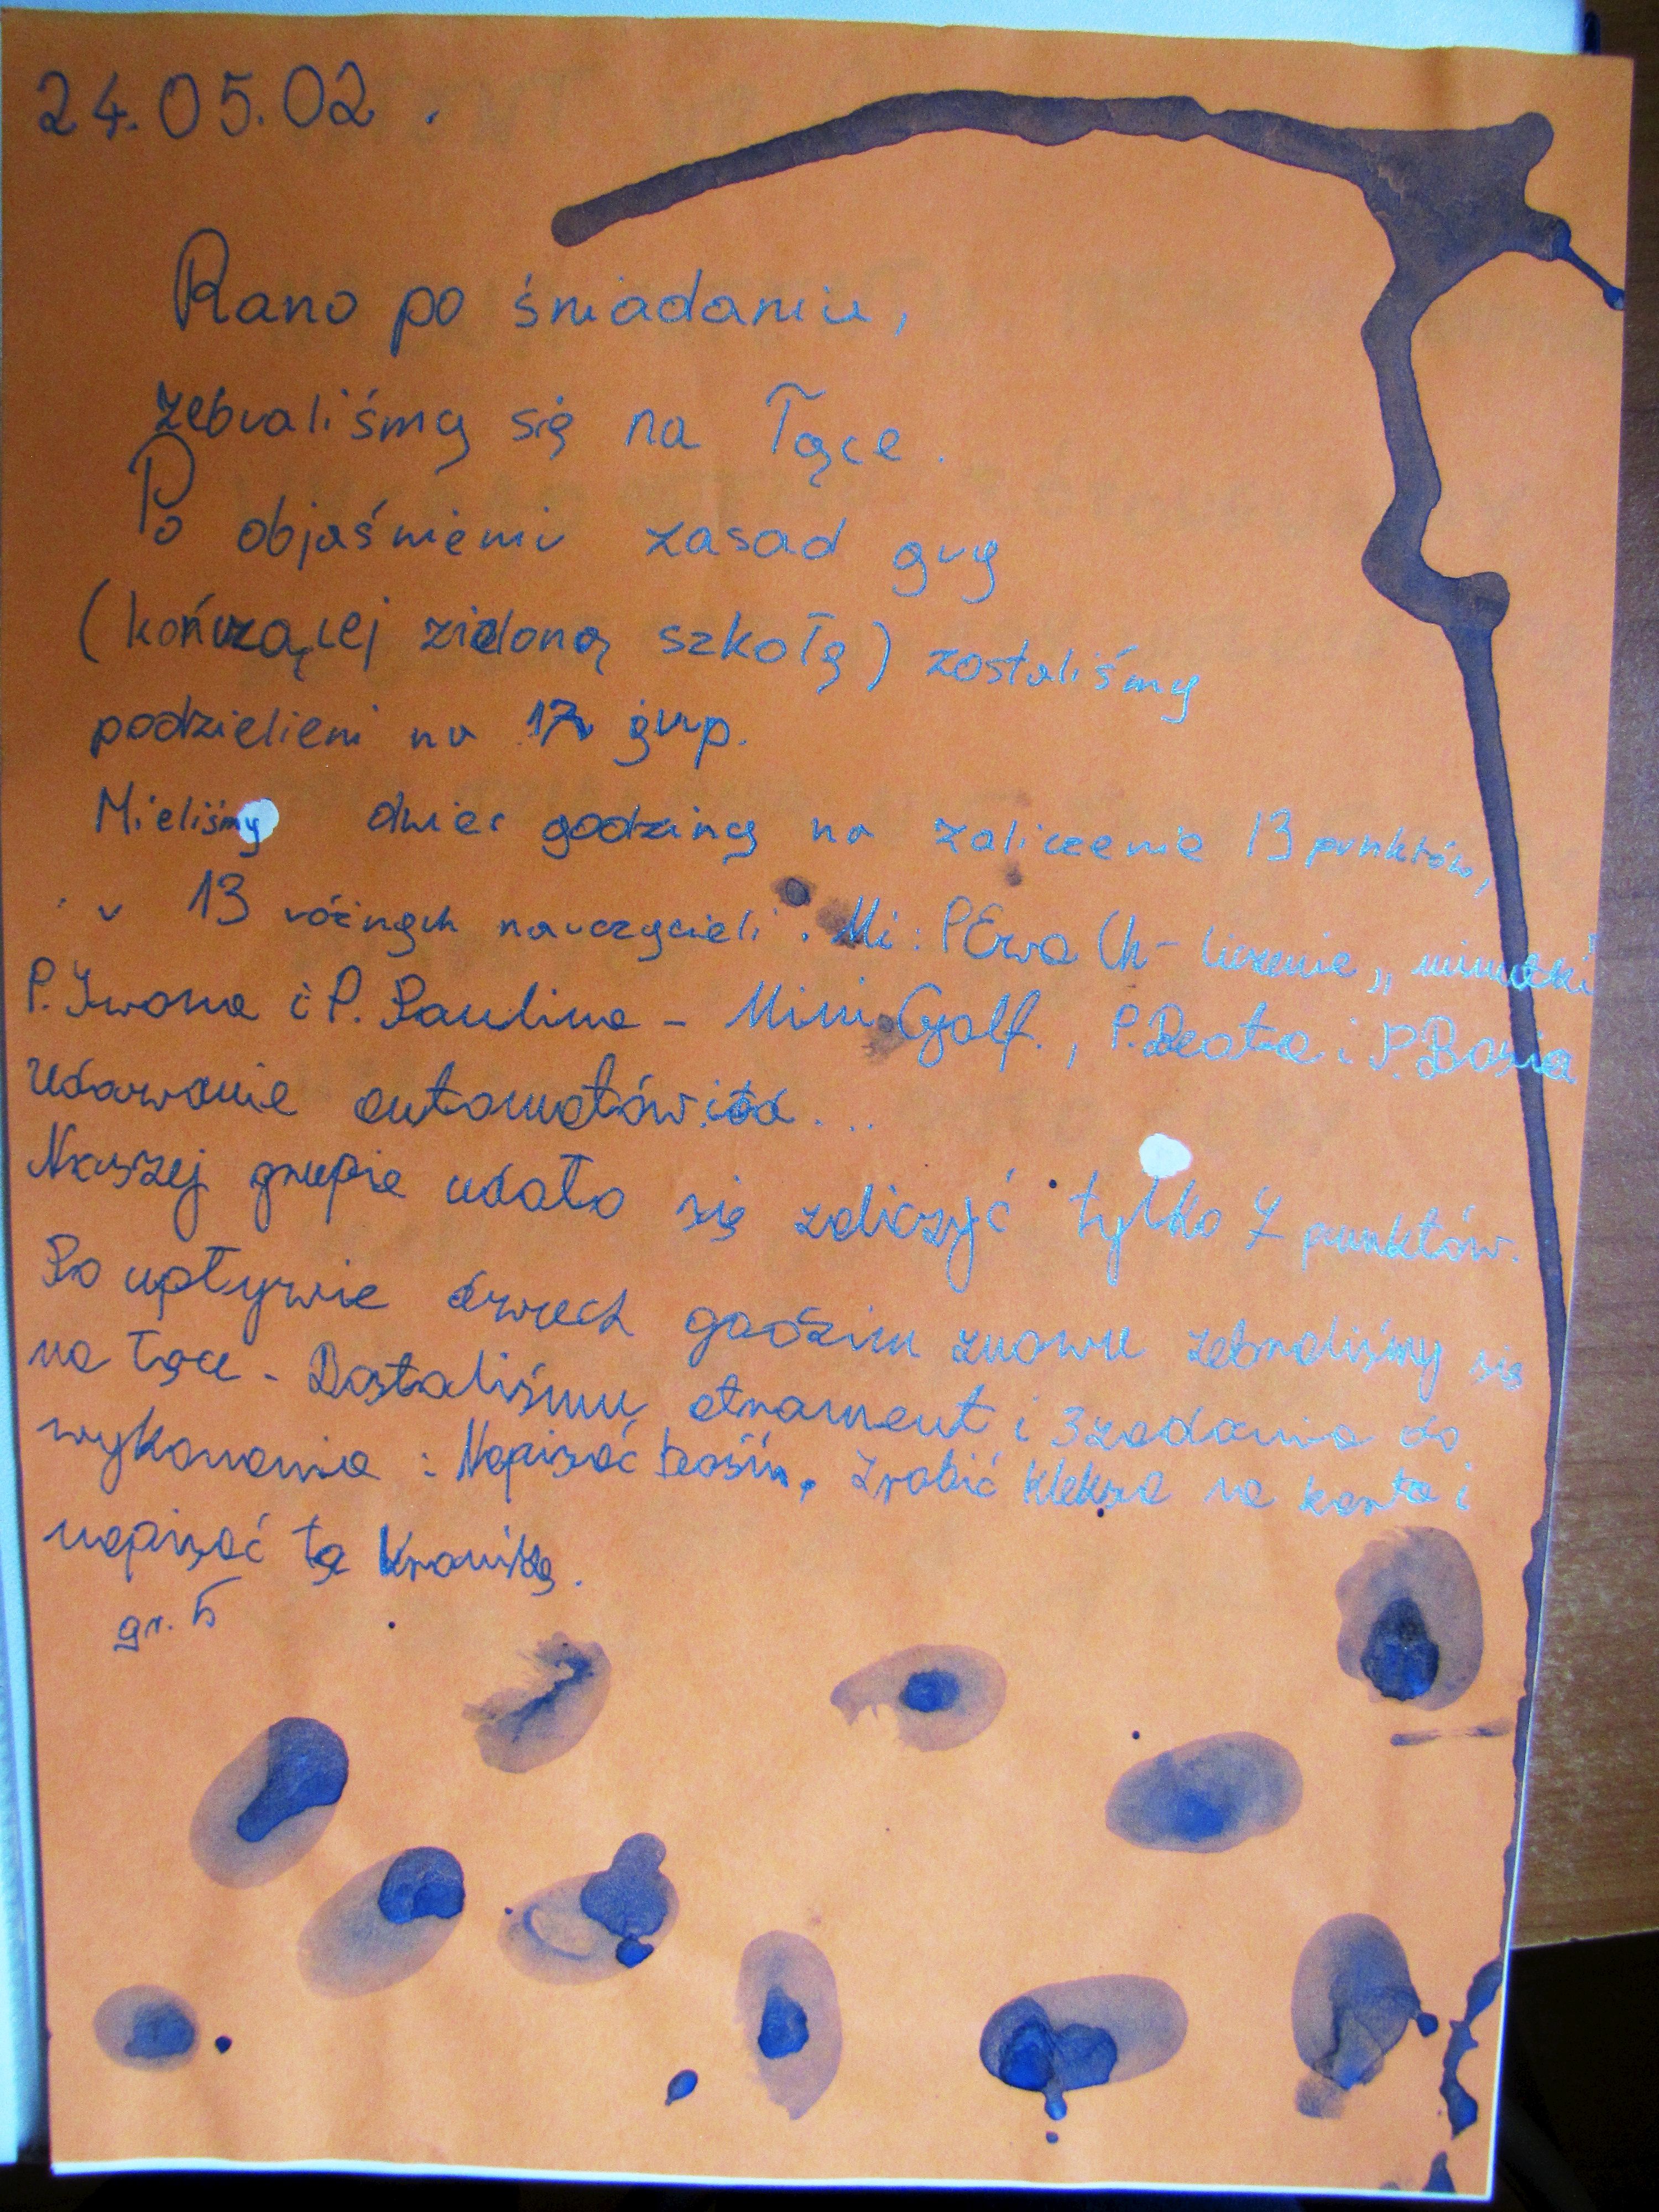 24.05.02.
Rano po śniadaniu,
zebraliśmy się na łące.
Po objaśnieniu zasad gry
(kończącej zieloną szkołę) zostaliśmy
podzielieni na 17 grup.
Mieliśmy dwie godziny na zaliczenie 13 punktów,
u 13 różnych nauczycieli. Mi: P Ewa Ch- liczenie „minutki"
P. Iwona i P. Paulina - Mini Golf., P. Beata i P. Basia
udawanie automatów itd...
Naszej grupie udało się zaliczyć tylko 7 punktów.
Po upływie dwóch godzin znowu zebraliśmy się
na łące. Dostaliśmy atrament i 3 zadania do
wykonania: Napisać baśń, zrobić kleksa na karta i
napisać tą kronikę.
gr. 5